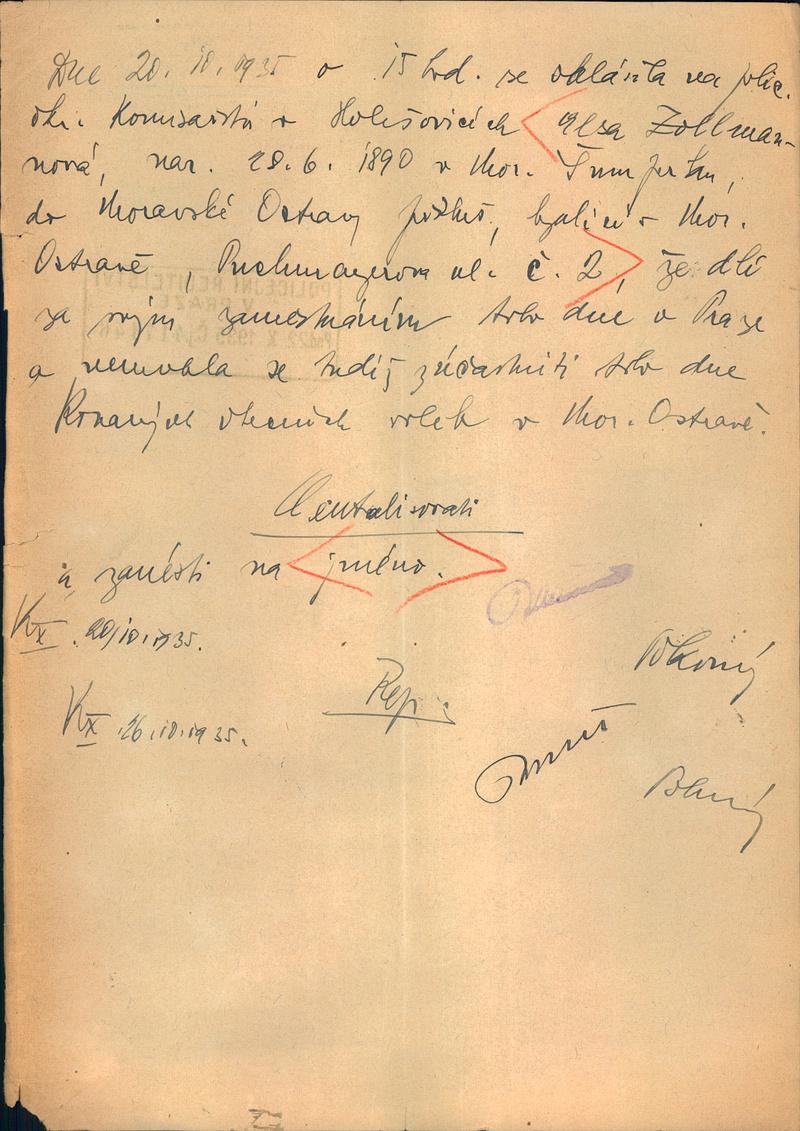 Dne 20. 10. 1935 o 15 hod. se ohlásila na polic.
okr. Komisařství v Holešovicích Elsa Zollman-
nová, nar. 28. 6. 1890 v Mor. Šumperku,
do Moravské Ostravy přísluš., bytící v Mor.
Ostravě, Puchmayerova ul. č. 2, že dlí
za svým zaměstnáním toho dne v Praze
a nemohla se tudíž zúčastniti toho dne
Konaných obecních voleb v Mor. Ostravě.
Centralisovati
a zanésti na jméno.
K X. 20/10.1935.
Rep
K X .26.10.1935.
POLICEJNÍ ŘEDITELSTVÍ
V PRAZE